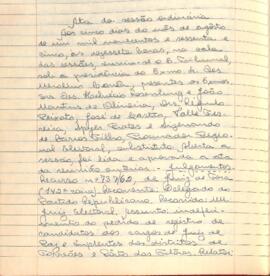 Ata da sessão ordinária
Aos cinco dias do mês de agosto
de um mil novecentos e sessenta e
cinco, às dezessete horas, na sala
das sessões, reuniu-se o E. Tribunal,
sob a presidência do Exmo. Sr. Des.
presentes os Exmos.
Srs. Des. e João
Martins de Oliveira, Drs.
Peixoto, José de Castro, Valle Fer-
reira, Pontes e
de Procurador Regio-
nal Eleitoral, substituto. Aberta a
sessão, foi lida e aprovada a ata
da reunião anterior. - Julgamentos:
Recurso nº 737/62, de Juiz de Fora
(142ª zona). Recorrente: Delegado do
Partido Republicano. Recorrido: M.
Juiz Eleitoral. Assunto: indeferi-
mento do pedido de registro de
candidatos aos cargos de juiz de
Paz e suplentes dos distritos de
e Relator: